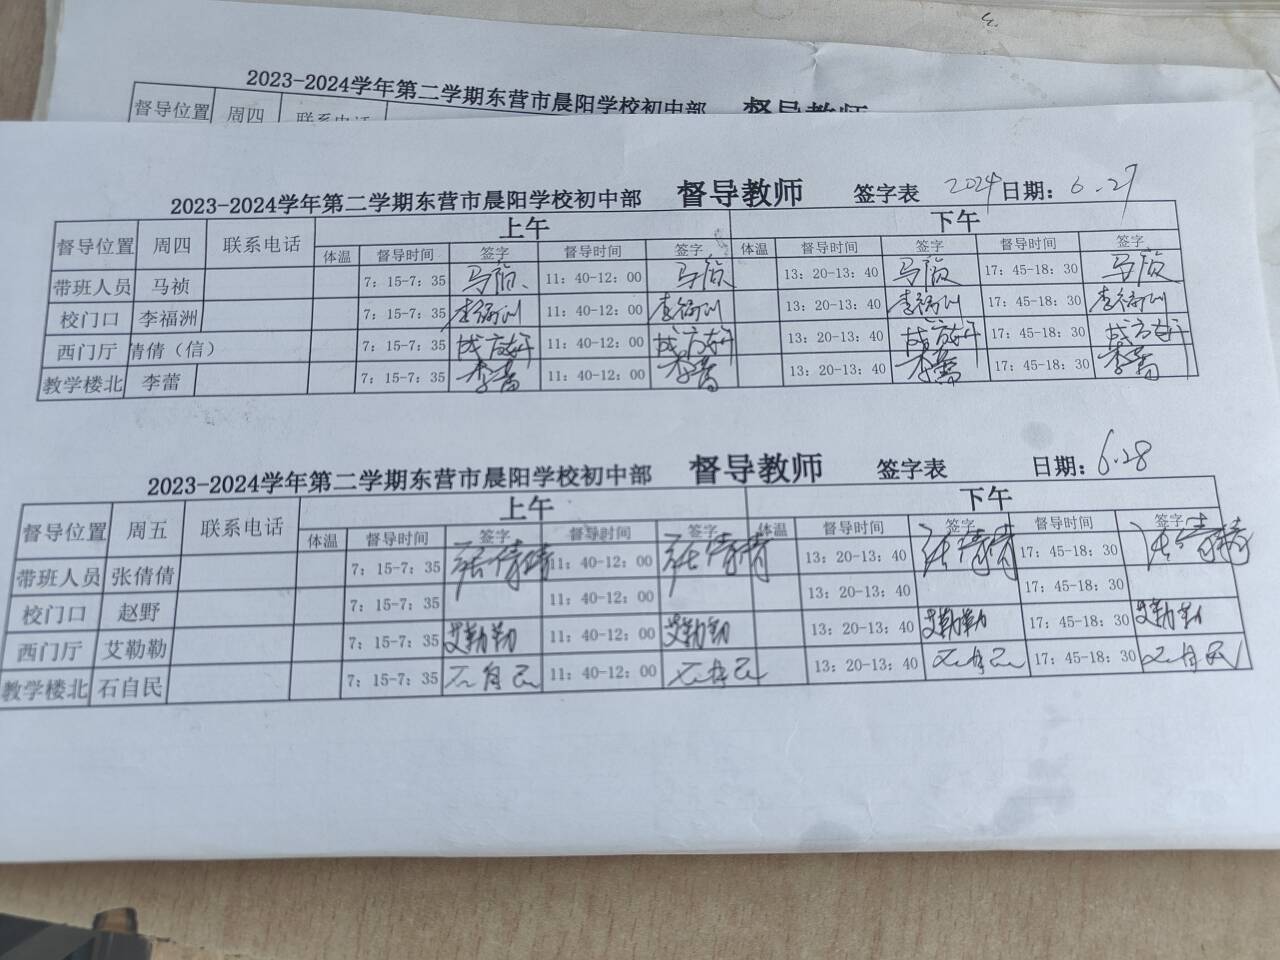 2023-2024学年第二学期东营市晨阳学校初中部 督导教师
督导位置 周四 联系电话
2023-2024学年第二学期东营市晨阳学校初中部 督导教师 签字表 2024 日期: 6.27
督导位置 周四 联系电话 上午 下午
体温 督导时间 签字 督导时间 签字 体温 督导时间 签字 督导时间 签字
带班人员 马祯 7: 15-7: 35 马祯 11: 40-12: 00 马祯 13: 20-13: 40 马祯 17: 45-18: 30 马祯
校门口 李福洲 7: 15-7: 35 李福洲 11: 40-12: 00 李福洲 13: 20-13: 40 李福洲 17: 45-18: 30 李福洲
西门厅 倩倩（信） 7: 15-7: 35 11: 40-12: 00 13: 20-13: 40 17: 45-18: 30
教学楼北 李蕾 7: 15-7: 35 李蕾 11: 40-12: 00 李蕾 13: 20-13: 40 李蕾 17: 45-18: 30 李蕾
2023-2024学年第二学期东营市晨阳学校初中部 督导教师 签字表 日期: 6.28
督导位置 周五 联系电话 上午 下午
体温 督导时间 签字 督导时间 签字 体温 督导时间 签字 督导时间 签字
带班人员 张倩倩 7: 15-7: 35 张倩倩 11: 40-12: 00 张倩倩 13: 20-13: 40 张倩倩 17: 45-18: 30 张倩倩
校门口 赵野 7: 15-7: 35 11: 40-12: 00 13: 20-13: 40 17: 45-18: 30
西门厅 艾勒勒 7: 15-7: 35 艾勒勒 11: 40-12: 00 艾勒勒 13: 20-13: 40 艾勒勒 17: 45-18: 30 艾勒勒
教学楼北 石自民 7: 15-7: 35 石自民 11: 40-12: 00 石自民 13: 20-13: 40 石自民 17: 45-18: 30 石自民